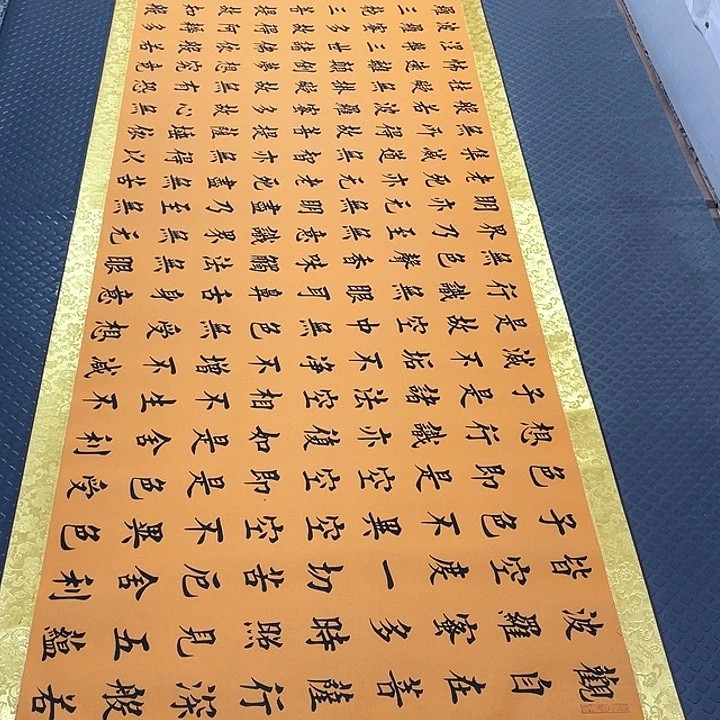 觀自在菩薩行深般若
波羅蜜多時照見五蘊
皆空度一切苦厄舍利
子色不異空空不異色
色即是空空即是色受
想行識亦復如是舍利
子是諸法空相不生不
滅不垢不净不增不減
是故空中無色無受想
行識無眼耳鼻舌身意
無色聲香味觸法無眼
界乃至無意識界無无
明亦无無明盡乃至無
老死亦无老死盡無苦
集滅道無智亦無得以
無所得故菩提薩埵依
般若波羅蜜多故心無
挂礙無挂礙故無有恐
怖遠離顛倒夢想究竟
涅槃三世諸佛依般若
波羅蜜多故得阿耨多
羅三藐三菩提故知般